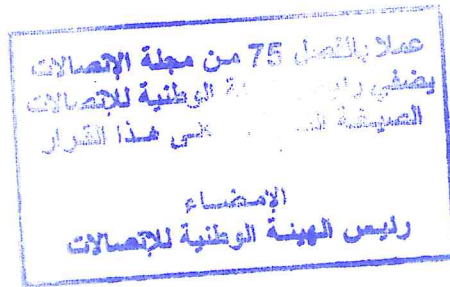 عملا بالفصل 75 من مجلة الإتصالات
يمضي الوطنية للإتصالات
الصيغة على هذا القرار
الإمضاء
رئيس الهيئة الوطنية للإتصالات